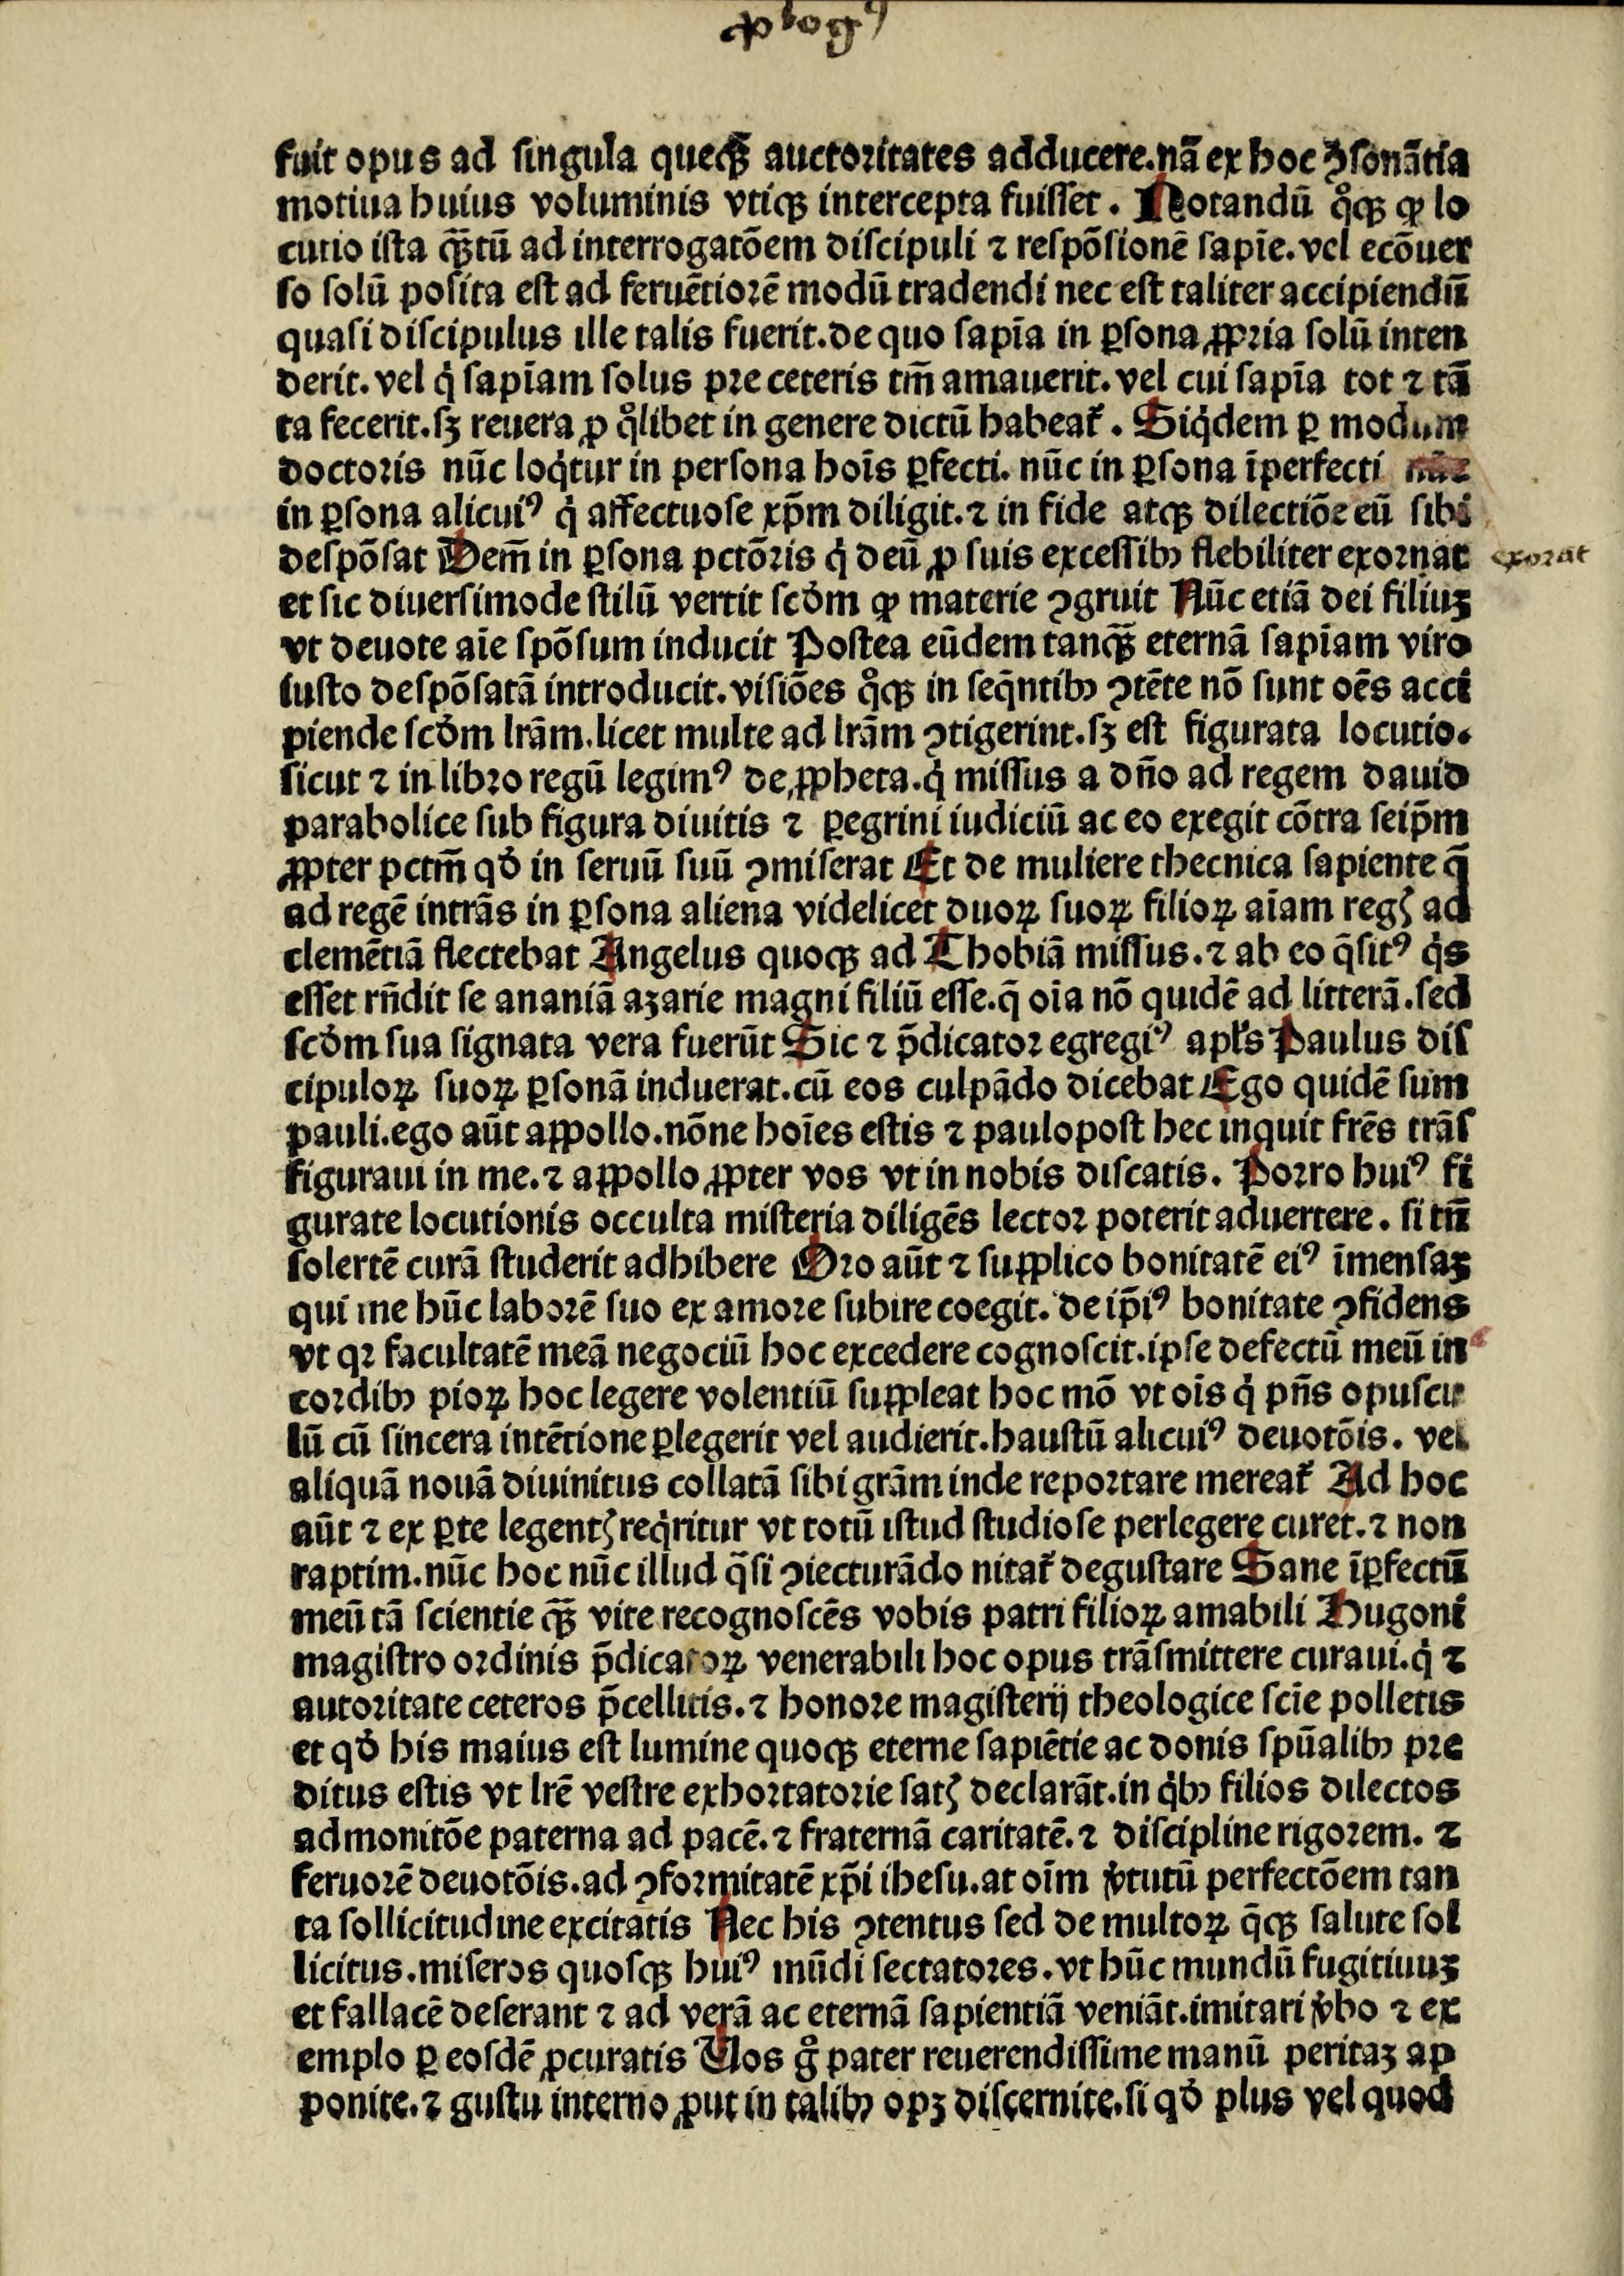 ꝓlogꝰ
fuit opus ad ſingula quecꝫ̄ auctoritates adducere.nā ex hoc ꝯſonātia
motiua huius voluminis vticꝫ intercepta fuiſſet. Notandū qͦcꝫ ꝙ lo
cutio iſta qꝫ̄tū ad interrogatōem diſcipuli ⁊ reſpōſionē ſapīe. vel ecōuer
ſo ſolū poſita eſt ad feruētiorē modū tradendi nec eſt taliter accipiendū
quaſi diſcipulus ille talis fuerit.de quo ſapīa in ꝑſona ꝓpria ſolū inten
derit. vel qͥ ſapīam ſolus pre ceteris tm̄ amauerit. vel cui ſapīa tot ⁊ tā
ta fecerit.ſꝫ reuera ꝓ qͦlibet in genere dictū habeat᷑. Siqͥdem ꝑ modum
doctoris nūc loqͥtur in perſona hoīs ꝑfecti. nūc in ꝑſona īperfecti nūc
in ꝑſona alicuiꝰ qͥ affectuoſe xp̄m diligit.⁊ in fide atcꝫ dilectiōe eū ſibi
deſpōſat Dem̄ in ꝑſona pctōris qͥ deū ꝓ ſuis exceſſibꝫ flebiliter exornat exorat
et ſic diuerſimode ſtilū vertit ſcd̄m ꝙ materie ꝯgruit Nūc etiā dei filiuꝫ
vt deuote aīe ſpōſum inducit Poſtea eūdem tancꝫ̄ eternā ſapīam viro
iuſto deſpōſatā introducit. viſiōes qͦcꝫ in ſeqn̄tibꝫ ꝯtēte nō ſunt oēs acci
piende ſcd̄m lr̄am.licet multe ad lr̄am ꝯtigerint.ſꝫ eſt figurata locutio.
ſicut ⁊ in libro regū legimꝰ de ꝓpheta.qͥ miſſus a dn̄o ad regem dauid
parabolice ſub figura diuitis ⁊ ꝑegrini iudiciū ac eo exegit cōtra ſeip̄m
ꝓpter pctm̄ qd̄ in ſeruū ſuū ꝯmiſerat Et de muliere thecnica ſapiente q̄
ad regē intrās in ꝑſona aliena videlicet duoꝝ ſuoꝝ filioꝝ aīam regꝭ ad
clemētiā flectebat Angelus quocꝫ ad Thobiā miſſus.⁊ ab eo q̄ſitꝰ qͥs
eſſet rn̄dit ſe ananiā azarie magni filiū eſſe.q̄ oīa nō quidē ad litterā.ſed
ſcd̄m ſua ſignata vera fuerūt Sic ⁊ p̄dicator egregiꝰ apl̄s Paulus diſ
cipuloꝝ ſuoꝝ ꝑſonā induerat.cū eos culpādo dicebat Ego quidē ſum
pauli.ego aūt appollo.nōne hoīes eſtis ⁊ paulopoſt hec inquit fr̄es trāſ
figuraui in me.⁊ appollo ꝓpter vos vt in nobis diſcatis. Porro huiꝰ fi
gurate locutionis occulta miſteria diligēs lector poterit aduertere. ſi tn̄
ſolertē curā ſtuderit adhibere Oro aūt ⁊ ſupplico bonitatē eiꝰ īmenſaꝫ
qui me hūc laborē ſuo ex amore ſubire coegit. de ip̄iꝰ bonitate ꝯfidens
vt qꝛ facultatē meā negociū hoc excedere cognoſcit.ipſe defectū meū in
cordibꝫ pioꝝ hoc legere volentiū ſuppleat hoc mō vt oīs qͥ pn̄s opuſcu
lū cū ſincera intētione ꝑlegerit vel audierit.hauſtū alicuiꝰ deuotōis. vel
aliquā nouā diuinitus collatā ſibi gr̄am inde reportare mereat᷑ Ad hoc
aūt ⁊ ex ꝑte legentꝭ reqͥritur vt totū iſtud ſtudioſe perlegere curet.⁊ non
raptim.nūc hoc nūc illud q̄ſi ꝯiecturādo nitat᷑ deguſtare Sane īꝑfectū
meū tā ſcientie qꝫ̄ vite recognoſcēs vobis patri filioꝝ amabili Hugoni
magiſtro ordinis p̄dicatoꝝ venerabili hoc opus trāſmittere curaui.qͥ ⁊
autoritate ceteros p̄cellitis.⁊ honore magiſterij theologice ſcīe polletis
et qd̄ his maius eſt lumine quocꝫ eterne ſapiētie ac donis ſpūalibꝫ pre
ditus eſtis vt lr̄e veſtre exhortatorie ſatꝭ declarāt.in qͥbꝫ filios dilectos
admonitōe paterna ad pacē.⁊ fraternā caritatē.⁊ diſcipline rigorem. ⁊
feruorē deuotōis.ad ꝯformitatē xp̄i iheſu.at oīm v̓tutū perfectōem tan
ta ſollicitudine excitatis Nec his ꝯtentus ſed de multoꝝ q̄cꝫ ſalute ſol
licitus.miſeros quoſcꝫ huiꝰ mūdi ſectatores.vt hūc mundū fugitiuuꝫ
et fallacē deſerant ⁊ ad verā ac eternā ſapientiā veniāt.imitari v̓bo ⁊ ex
emplo ꝑ eoſdē ꝓcuratis Vos g̊ pater reuerendiſſime manū peritaꝫ ap
ponite.⁊ guſtu interno ꝓut in talibꝫ opꝫ diſcernite.ſi qd̄ plus vel quod